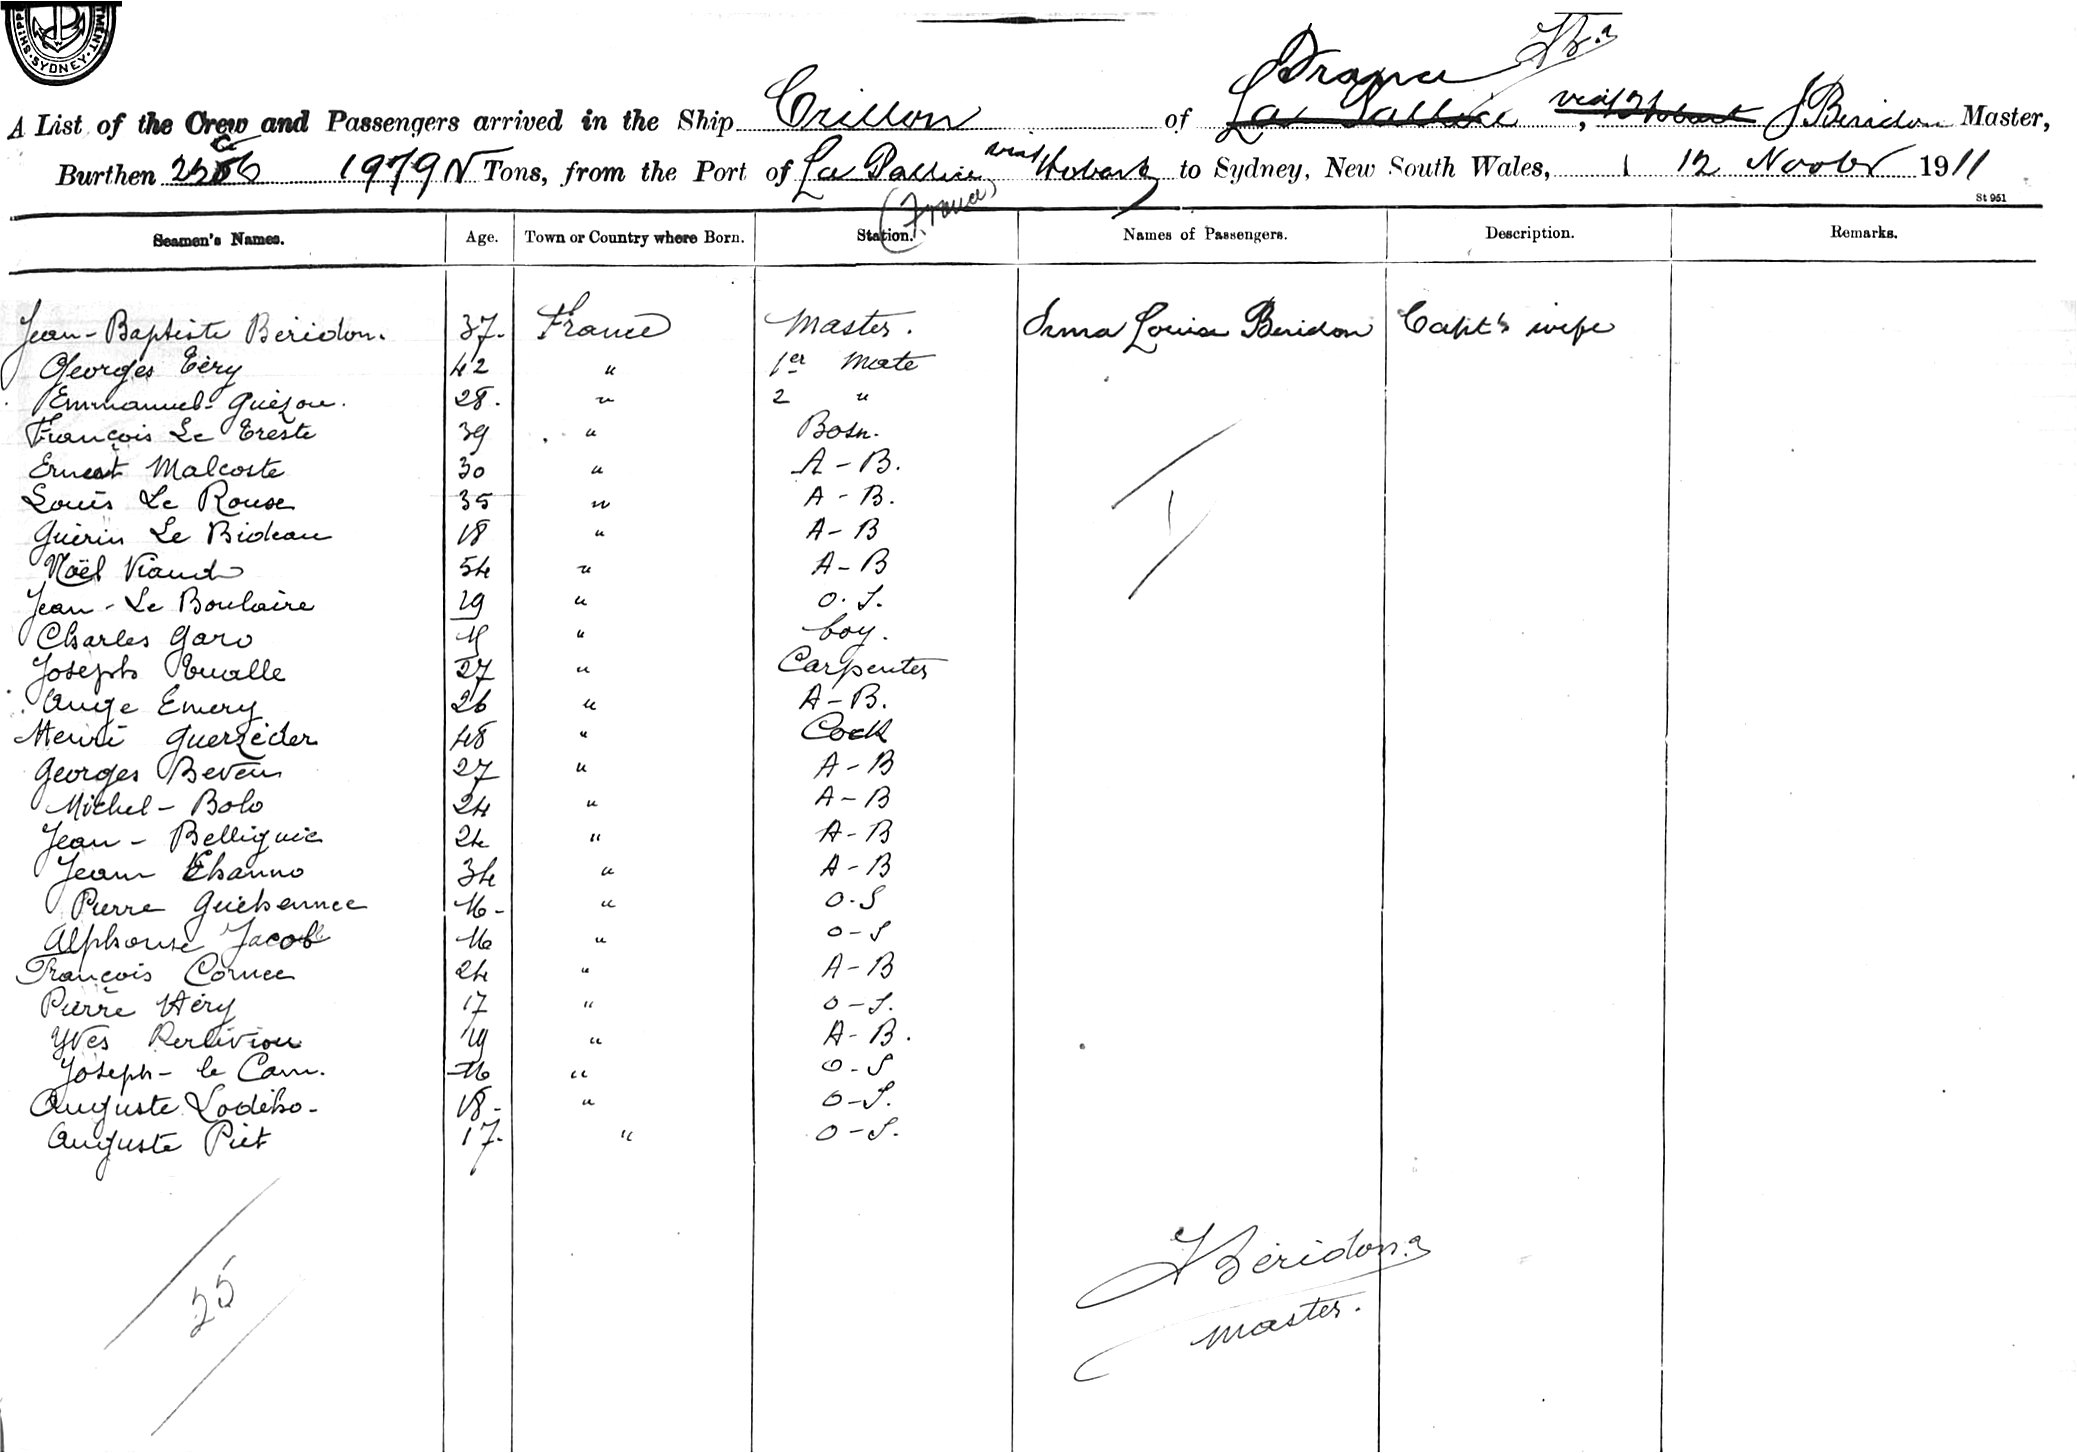 SHIPP MENT. SYDNEY.
France
A List of the Crew and Passengers arrived in the Ship Crillon of La Pallice via Hobart, J Beridon Master,
Burthen 1979 N Tons, from the Port of La Pallice via Hobart to Sydney, New South Wales, 12 Novbr 1911
(France)
St 951
Seamen's Names. Age. Town or Country where Born. Station. Names of Passengers. Description. Remarks.
Jean-Baptiste Béridon. 37. France Master. Irma Louise Beridon Capt's wife
Georges Eéry 42 " 1er Mate
Emmanuel Guézou. 28. " 2 "
François Le Treste 39 " Bosn.
Ernest Malcoste 30 " A-B.
Louis Le Rouse 35 " A-B.
Guérin Le Bideau 18 " A-B
Noël Viaud 54 " A-B
Jean-Le Boulaire 29 " O.S.
Charles Garo " boy.
Joseph Eualle 27 " Carpenter
Ange Emery 26 " A-B.
Henri Guerzéder 48 " Cook
Georges Beven 27 " A-B
Michel-Bolo 24 " A-B
Jean-Belliguic 24 " A-B
Jean Ehanno 34 " A-B
Pierre Guéhennec 16- " O.S
Alphonse Jacob 16 " O-S
François Cornec 24 " A-B
Pierre Héry 17 " O-S.
Yves Kerliviou 19 " A-B.
Joseph-le Cam. 16 " O-S
Auguste Lodého- 18- " O-S.
Auguste Piet 17. " O-S.
1
25
J Béridon
master.